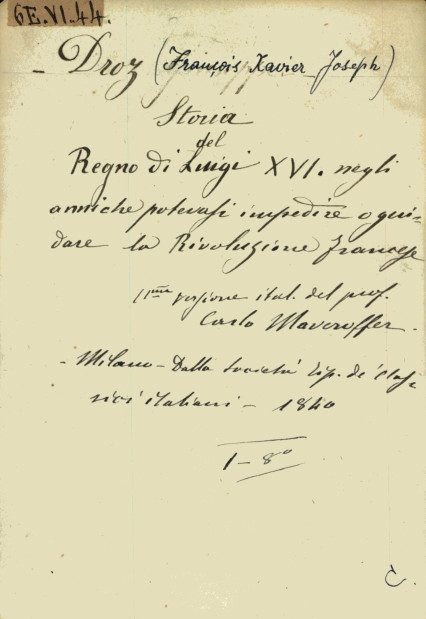 6E.VI.44.
- Droz (François Xavier Joseph)
Storia
del
Regno di Luigi XVI. negli
anni che potevasi impedire o gui-
dare la Rivoluzione francese
versione ital. del prof.
Carlo
- Milano - Dalla Società Tip. de' Clas-
sici italiani - 1840
1-8°
C.